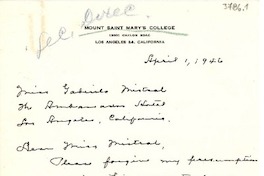 3786.1
Sec. Direc.
MOUNT SAINT MARY'S COLLEGE
12001 CHALON ROAD
LOS ANGELES 24, CALIFORNIA
April 1, 1946
Miss Gabriela Mistral
The Ambassador Hotel
Los Angeles, California.
Dear Miss Mistral,
Please forgive my presumption